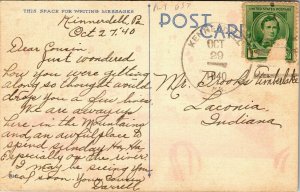 THIS SPACE FOR WRITING MESSAGES
Kinnerdell Pa
Oct 27 '40
Dear Cousin
Just wondered
how you were getting
along so thought would
drop you a few lines.
We are always up
here in the Mountains
and an awful place to
spend Sunday Ha Ha
especially on the river.
I may be seeing you
real soon. Your Cousin
Darrell
POST CARD
OCT
29
1940
UNITED STATES POSTAGE
Mr.
Laconia
Indiana